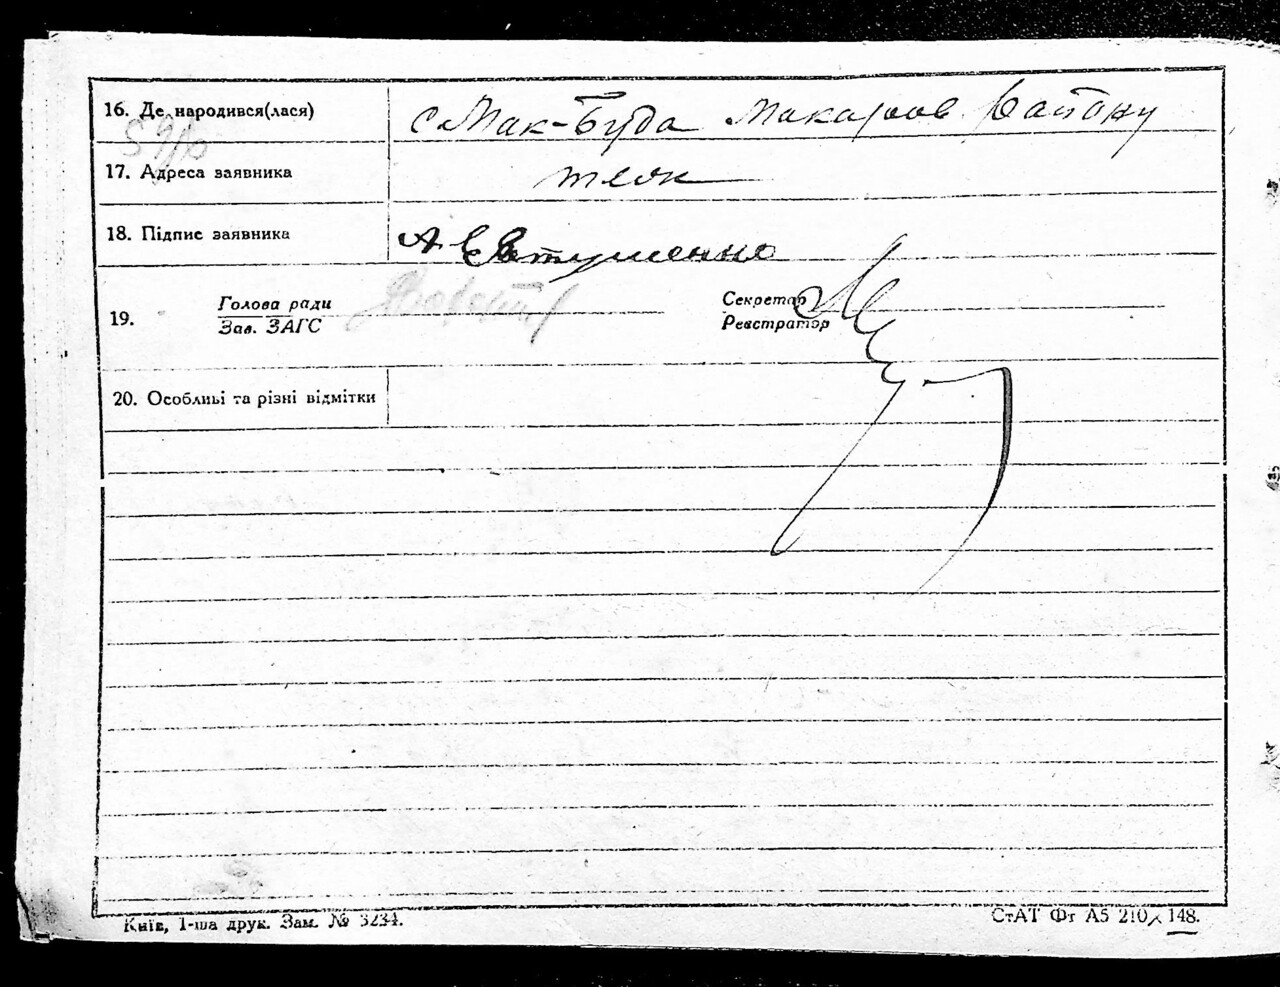 16. Де народився(лася) с Мак-Буда Макаров Району
17. Адреса заявника
18. Підпис заявника А Євтушенко
19. Голова ради Секретар
Зав. ЗАГС Реєстратор
20. Особливі та різні відмітки
Київ, 1-ша друк. Зам. № 3234.
СтАТ Фт А5 210 х 148.